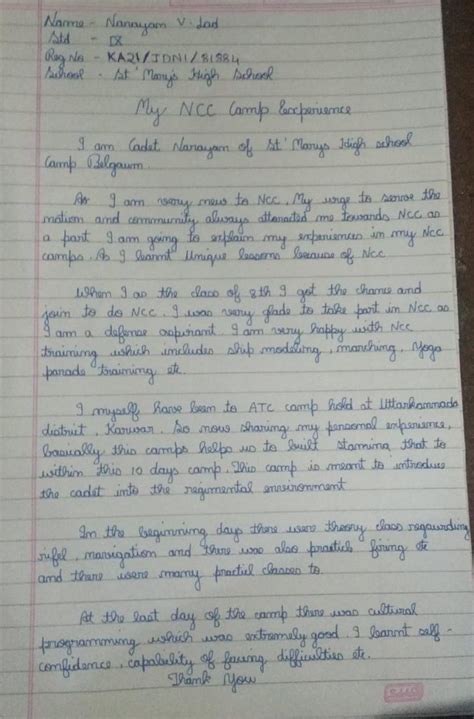 Name - Narayan V. Lad
Std - IX
Reg No - KA21/JDN1/81584
School - St' Mary's High School
My NCC Camp Experience
I am Cadet Narayan of St' Marys High school
Camp Belgaum.
As I am very new to NCC, My urge to serve the
nation and community always attaracted me towards NCC as
a part I am going to explain my experiences in my NCC
camps. As I learnt Unique lessons because of NCC
When I as the class of 8th I got the chance and
join to do NCC. I was very glade to take part in NCC as
I am a defense aspirant I am very happy with NCC
training which includes ship modeling, marching, Yoga
parade training etc.
I myself have been to ATC camp hold at Uttarkannada
district, Karwar. So now sharing my personal experience,
basically this camps helps us to built stamina that to
within this 10 days camp. This camp is meant to introduce
the cadet into the regimental environment
In the beginning days there were theory class regaurding
rifel, navigation and there was also practils firing etc
and there were many practil classes to.
At the last day of the camp there was cultural
programming which was extremely good. I learnt self-
confidence, capability of facing difficulties etc.
Thank You